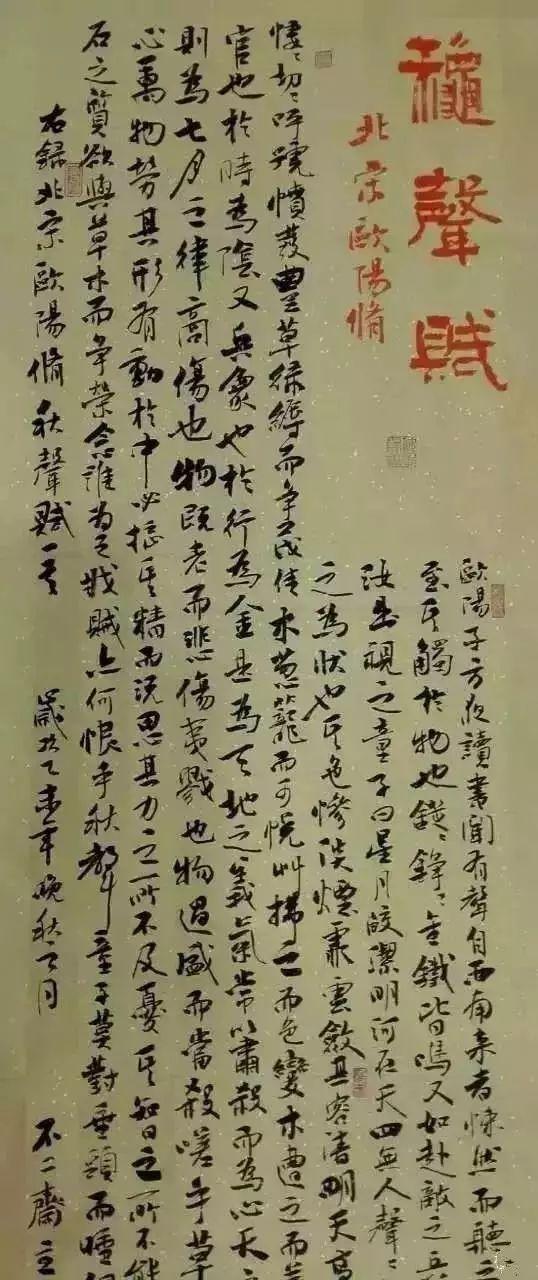 龝聲賦
北宋歐陽脩
歐陽子方夜讀書聞有聲自西南来者悚然而聽之
至其觸於物也鏦〻錚〻金鐵皆鳴又如赴敵之兵
汝出視之童子曰星月皎潔明河在天四無人聲〻
之為狀也其色慘淡煙霏雲斂其容清明天高
悽〻切〻呼號憤發豐草綠縟而争茂佳木葱蘢而可悦艸拂之而色變木遭之而
官也於時為陰又兵象也於行為金是為天地之義氣常以肅殺而為心天
則為七月之律商傷也物既老而悲傷夷戮也物過盛而當殺嗟乎草
心萬物勞其形有動於中必搖其精而況思其力之所不及憂其智之所不能
石之質欲與草木而争榮念誰為之戕賊亦何恨乎秋聲童子莫對垂頭而睡
右録北宋歐陽脩秋聲賦一首 歲次乙未年晚秋之月 不二齋主